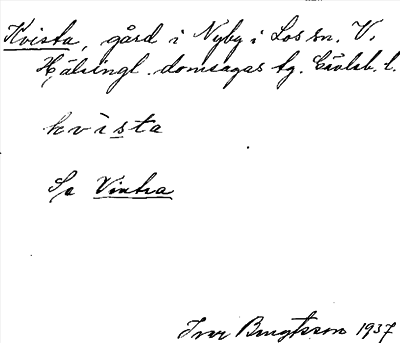 Kvista, gård i Nyby i Los sn. V.
Hälsingl. domsagas tg. Gävleb. l.
kvista
Se Vintra
Ivar Bengtsson 1937